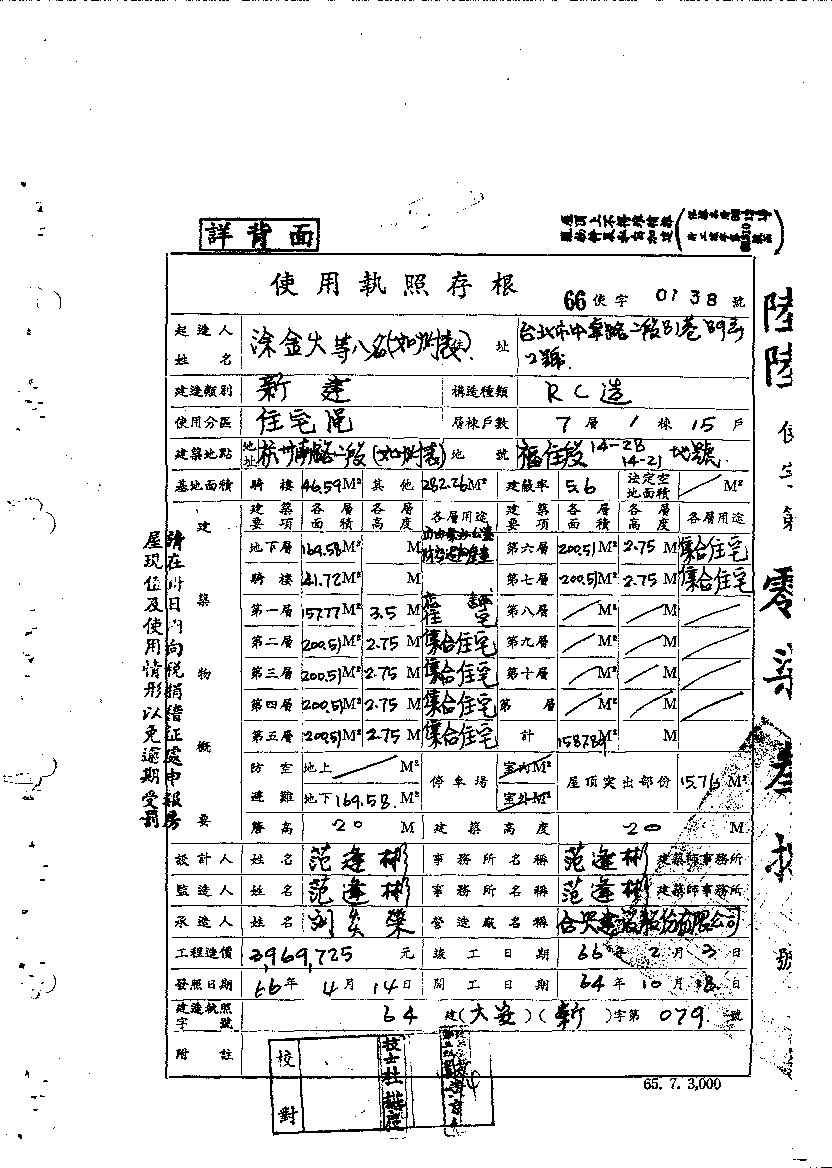 詳背面
屋頂上不得堆積雜
使用執照存根
66使字0138號
起造人姓名 涂金火等八名(如附表) 住址 台北市中華路二段81巷89弄2號
建造類別 新建 構造種類 RC造
使用分區 住宅區 層棟戶數 7層1棟15戶
建築地點 地址 杭州南路二段(如附表) 地號 福住段14-28 14-21地號
基地面積 騎樓 46.59M² 其他 282.26M² 建蔽率 56 法定空地面積 M²
建築物概要
建築要項 各層面積 各層高度 各層用途 建築要項 各層面積 各層高度 各層用途
地下層 169.58M² M 第六層 200.51M² 2.75M 集合住宅
騎樓 41.72M² M 第七層 200.51M² 2.75M 集合住宅
第一層 157.77M² 3.5M 第八層 M² M
第二層 200.51M² 2.75M 集合住宅 第九層 M² M
第三層 200.51M² 2.75M 集合住宅 第十層 M² M
第四層 200.51M² 2.75M 集合住宅 第 層 M² M
第五層 200.51M² 2.75M 集合住宅 計 M² M
防空避難 地上 M² 停車場 室內M² 屋頂突出部份 15.76M²
地下169.58M² 室外M²
簷高 20M 建築高度 20M
設計人 姓名 范逢彬 事務所名稱 范逢彬建築師事務所
監造人 姓名 范逢彬 事務所名稱 范逢彬建築師事務所
承造人 姓名 劉炎榮 營造廠名稱 合興建設股份有限公司
工程造價 3,969,725元 竣工日期 66年2月3日
發照日期 66年4月14日 開工日期 64年10月18日
建造執照字號 64建(大安)(新)字第079號
附註
校對
65. 7. 3,000
請在卅日內向稅捐稽征處申報房
屋現值及使用情形以免逾期受罰
陸陸使字第零柒叁捌號